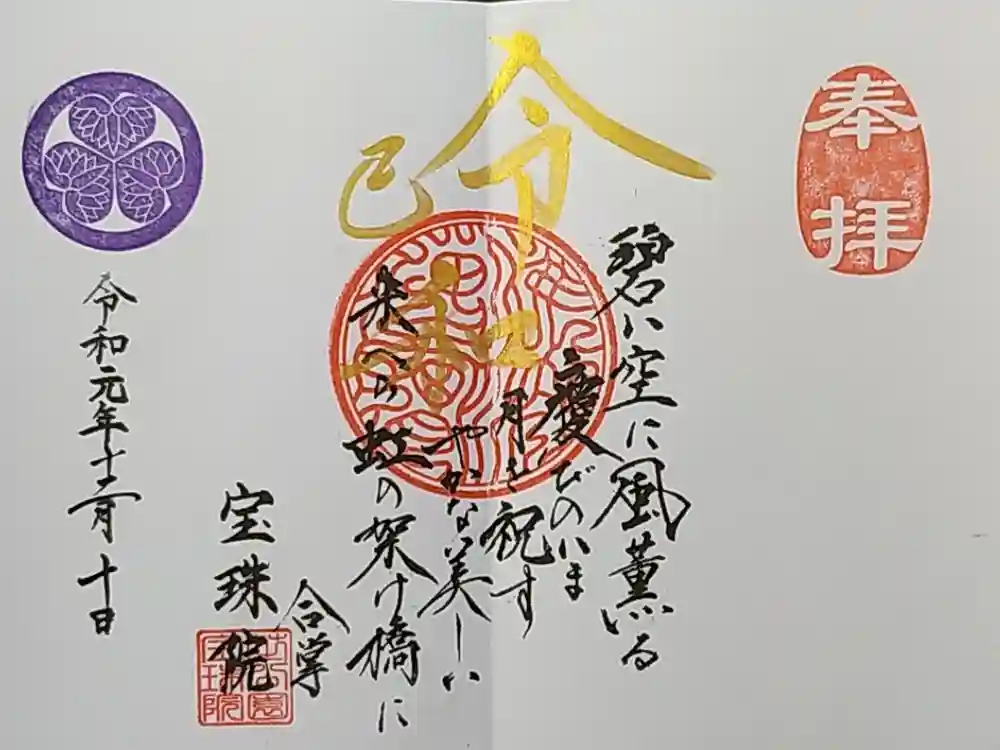 奉拝
碧い空に風薫る
慶びのいま
令月を祝す
和やかな美しい
虹の架け橋に
合掌
宝珠院
令和元年十二月十日